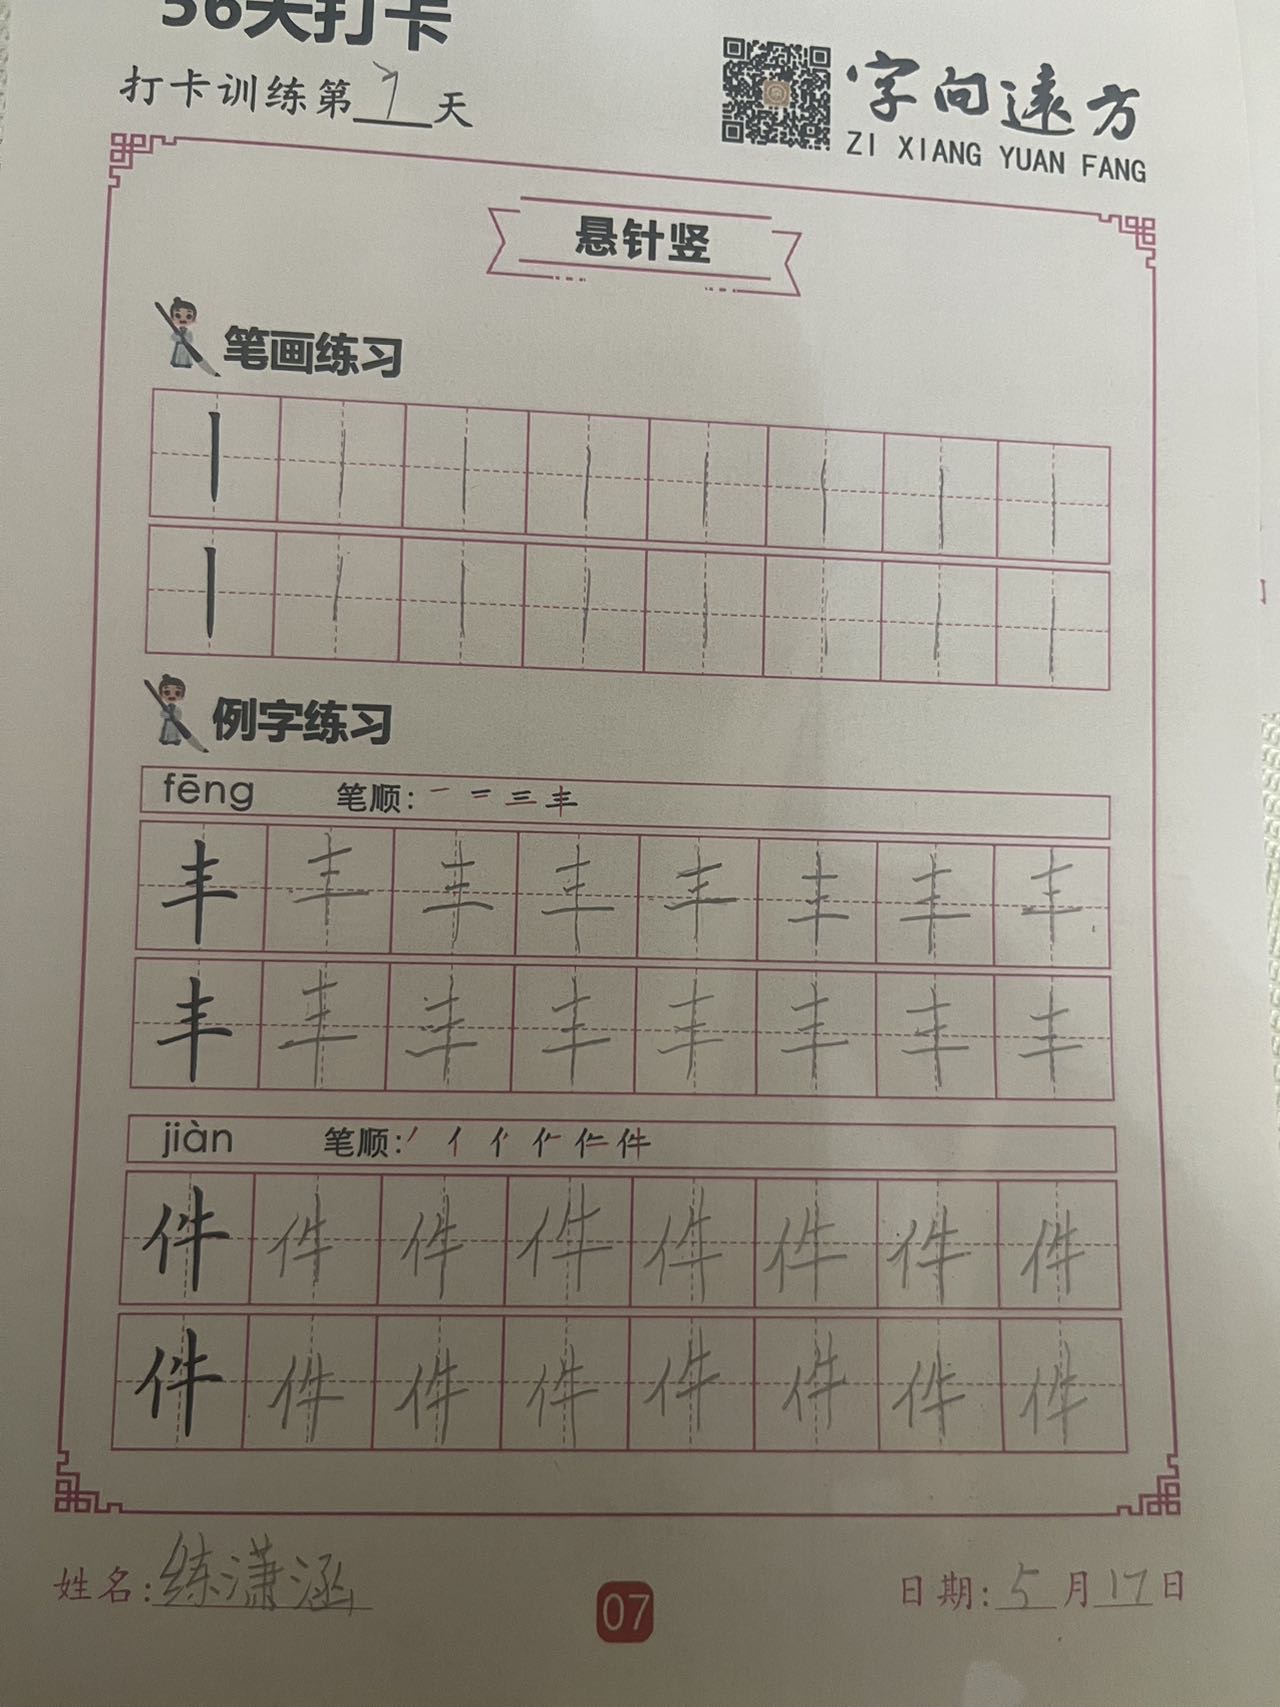 56天打卡
打卡训练第7天
字向远方
ZI XIANG YUAN FANG
悬针竖
笔画练习
丨 丨 丨 丨 丨 丨 丨 丨
丨 丨 丨 丨 丨 丨 丨 丨
例字练习
fēng 笔顺: 一 二 三 丰
丰 丰 丰 丰 丰 丰 丰 丰
丰 丰 丰 丰 丰 丰 丰 丰
jiàn 笔顺: 件
件 件 件 件 件 件 件 件
件 件 件 件 件 件 件 件
姓名:练潇涵
07
日期:5月17日